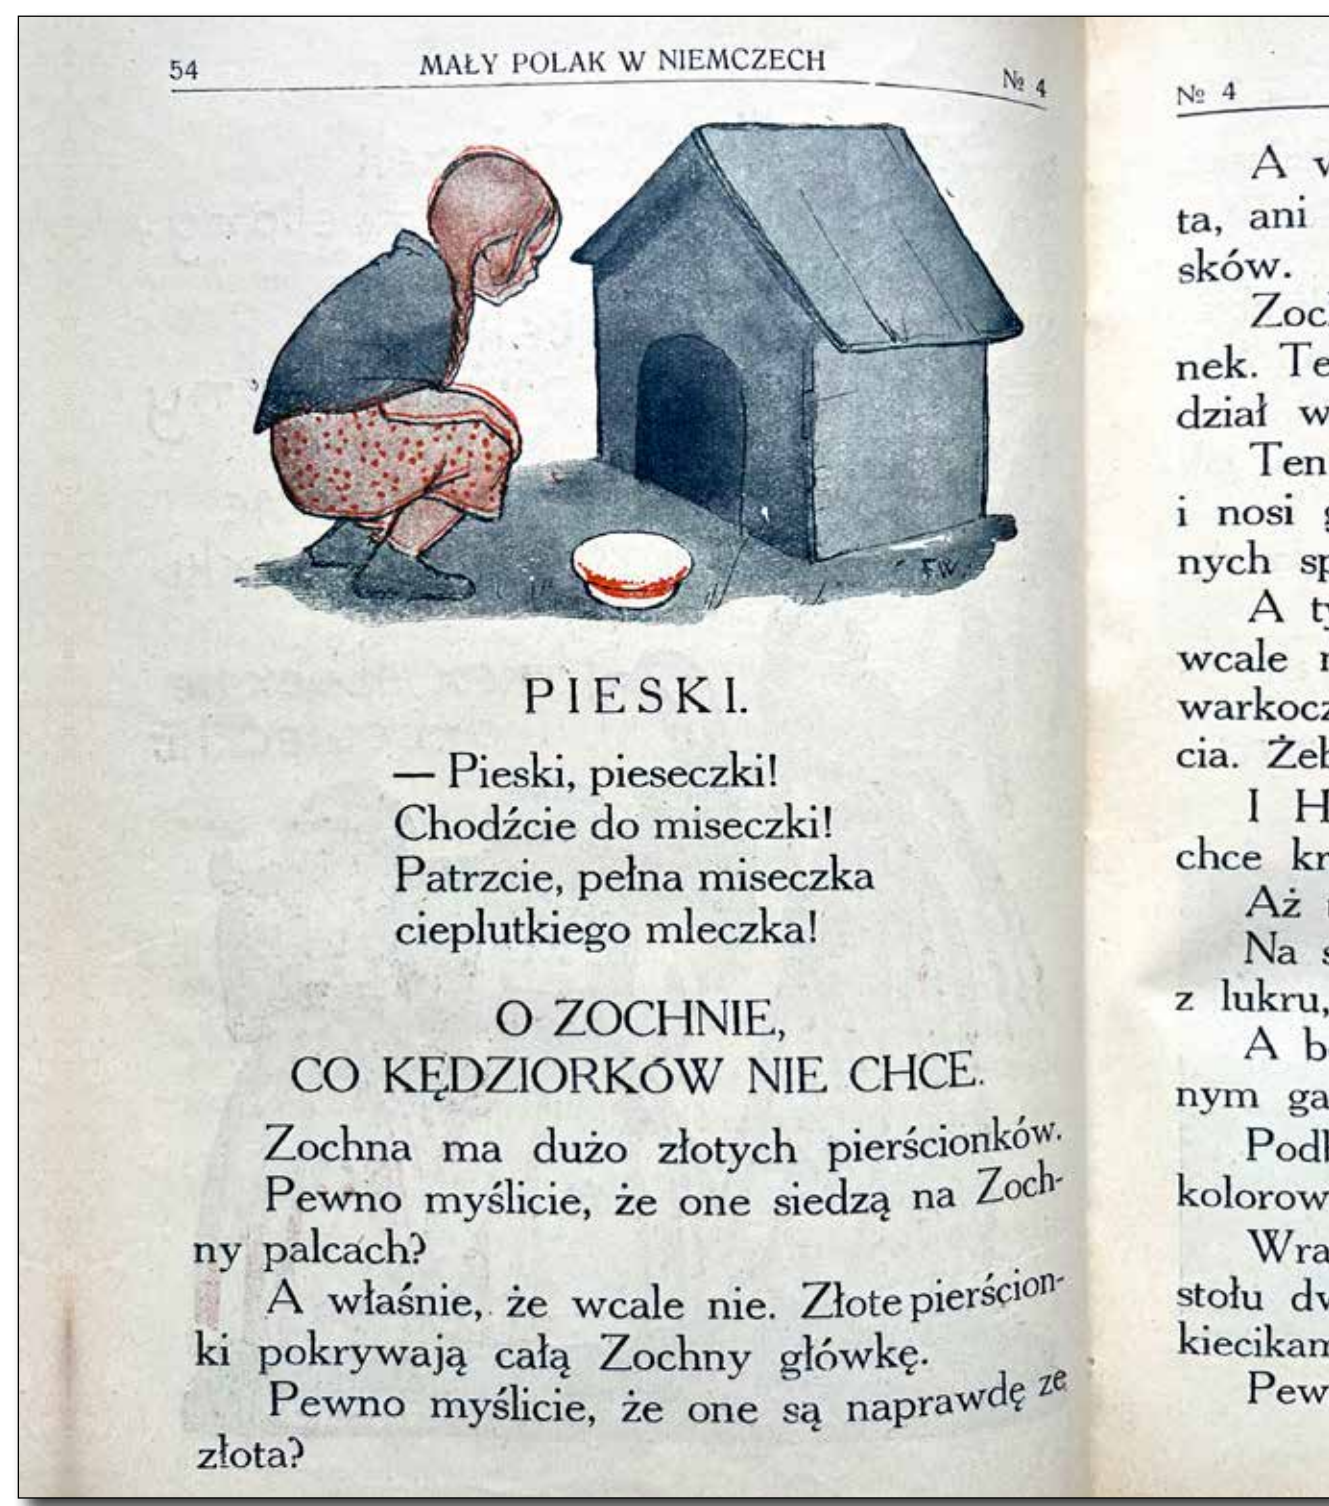 54
MAŁY POLAK W NIEMCZECH
№ 4
FW
PIESKI.
— Pieski, pieseczki!
Chodźcie do miseczki!
Patrzcie, pełna miseczka
cieplutkiego mleczka!
O ZOCHNIE,
CO KĘDZIORKÓW NIE CHCE.
Zochna ma dużo złotych pierścionków.
Pewno myślicie, że one siedzą na Zoch-
ny palcach?
A właśnie, że wcale nie. Złote pierścion-
ki pokrywają całą Zochny główkę.
Pewno myślicie, że one są naprawdę ze
złota?
№ 4
A
ta, ani
sków.
nek.
dział
Ten
i nosi
nych
A
wcale
cia.
I
chce
Aż
Na
z lukru,
A
nym
stołu